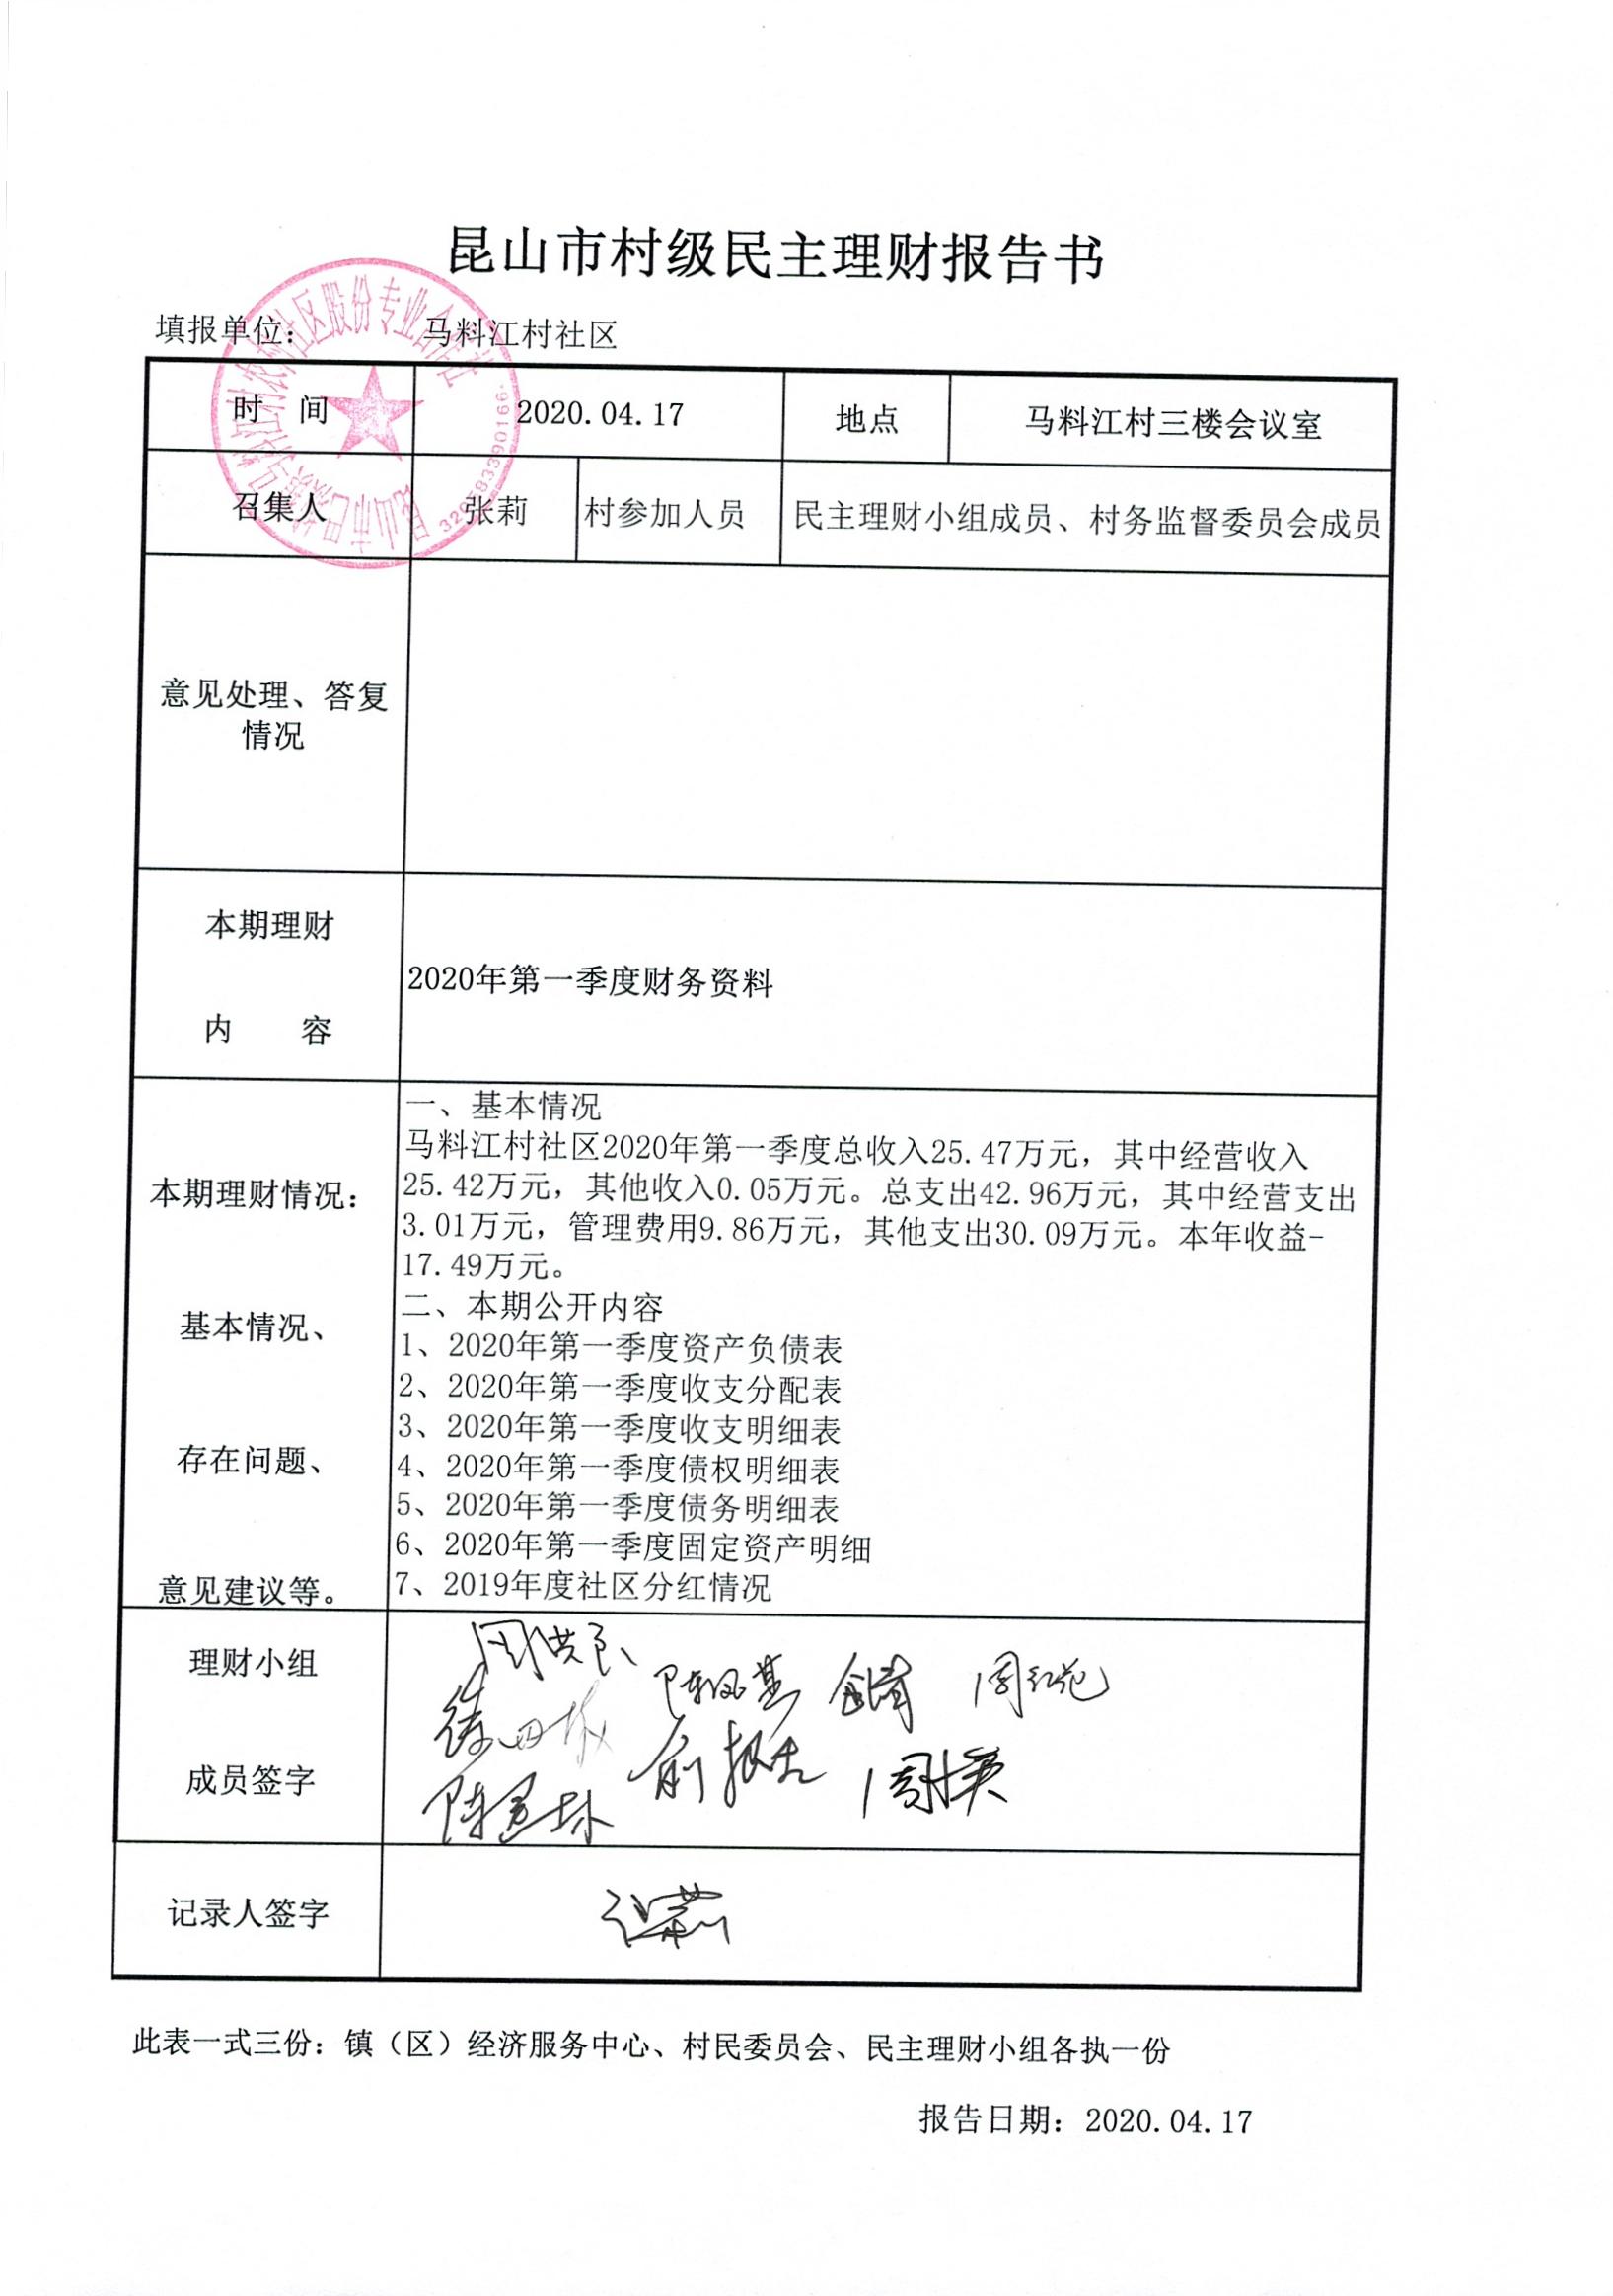 昆山市村级民主理财报告书
填报单位： 马料江村社区
时 间 2020.04.17 地点 马料江村三楼会议室
召集人 张莉 村参加人员 民主理财小组成员、村务监督委员会成员
意见处理、答复
情况
本期理财
内 容
2020年第一季度财务资料
本期理财情况：
基本情况、
存在问题、
意见建议等。
一、基本情况
马料江村社区2020年第一季度总收入25.47万元，其中经营收入
25.42万元，其他收入0.05万元。总支出42.96万元，其中经营支出
3.01万元，管理费用9.86万元，其他支出30.09万元。本年收益-
17.49万元。
二、本期公开内容
1、2020年第一季度资产负债表
2、2020年第一季度收支分配表
3、2020年第一季度收支明细表
4、2020年第一季度债权明细表
5、2020年第一季度债务明细表
6、2020年第一季度固定资产明细
7、2019年度社区分红情况
理财小组
成员签字
记录人签字
张莉
此表一式三份：镇（区）经济服务中心、村民委员会、民主理财小组各执一份
报告日期：2020.04.17